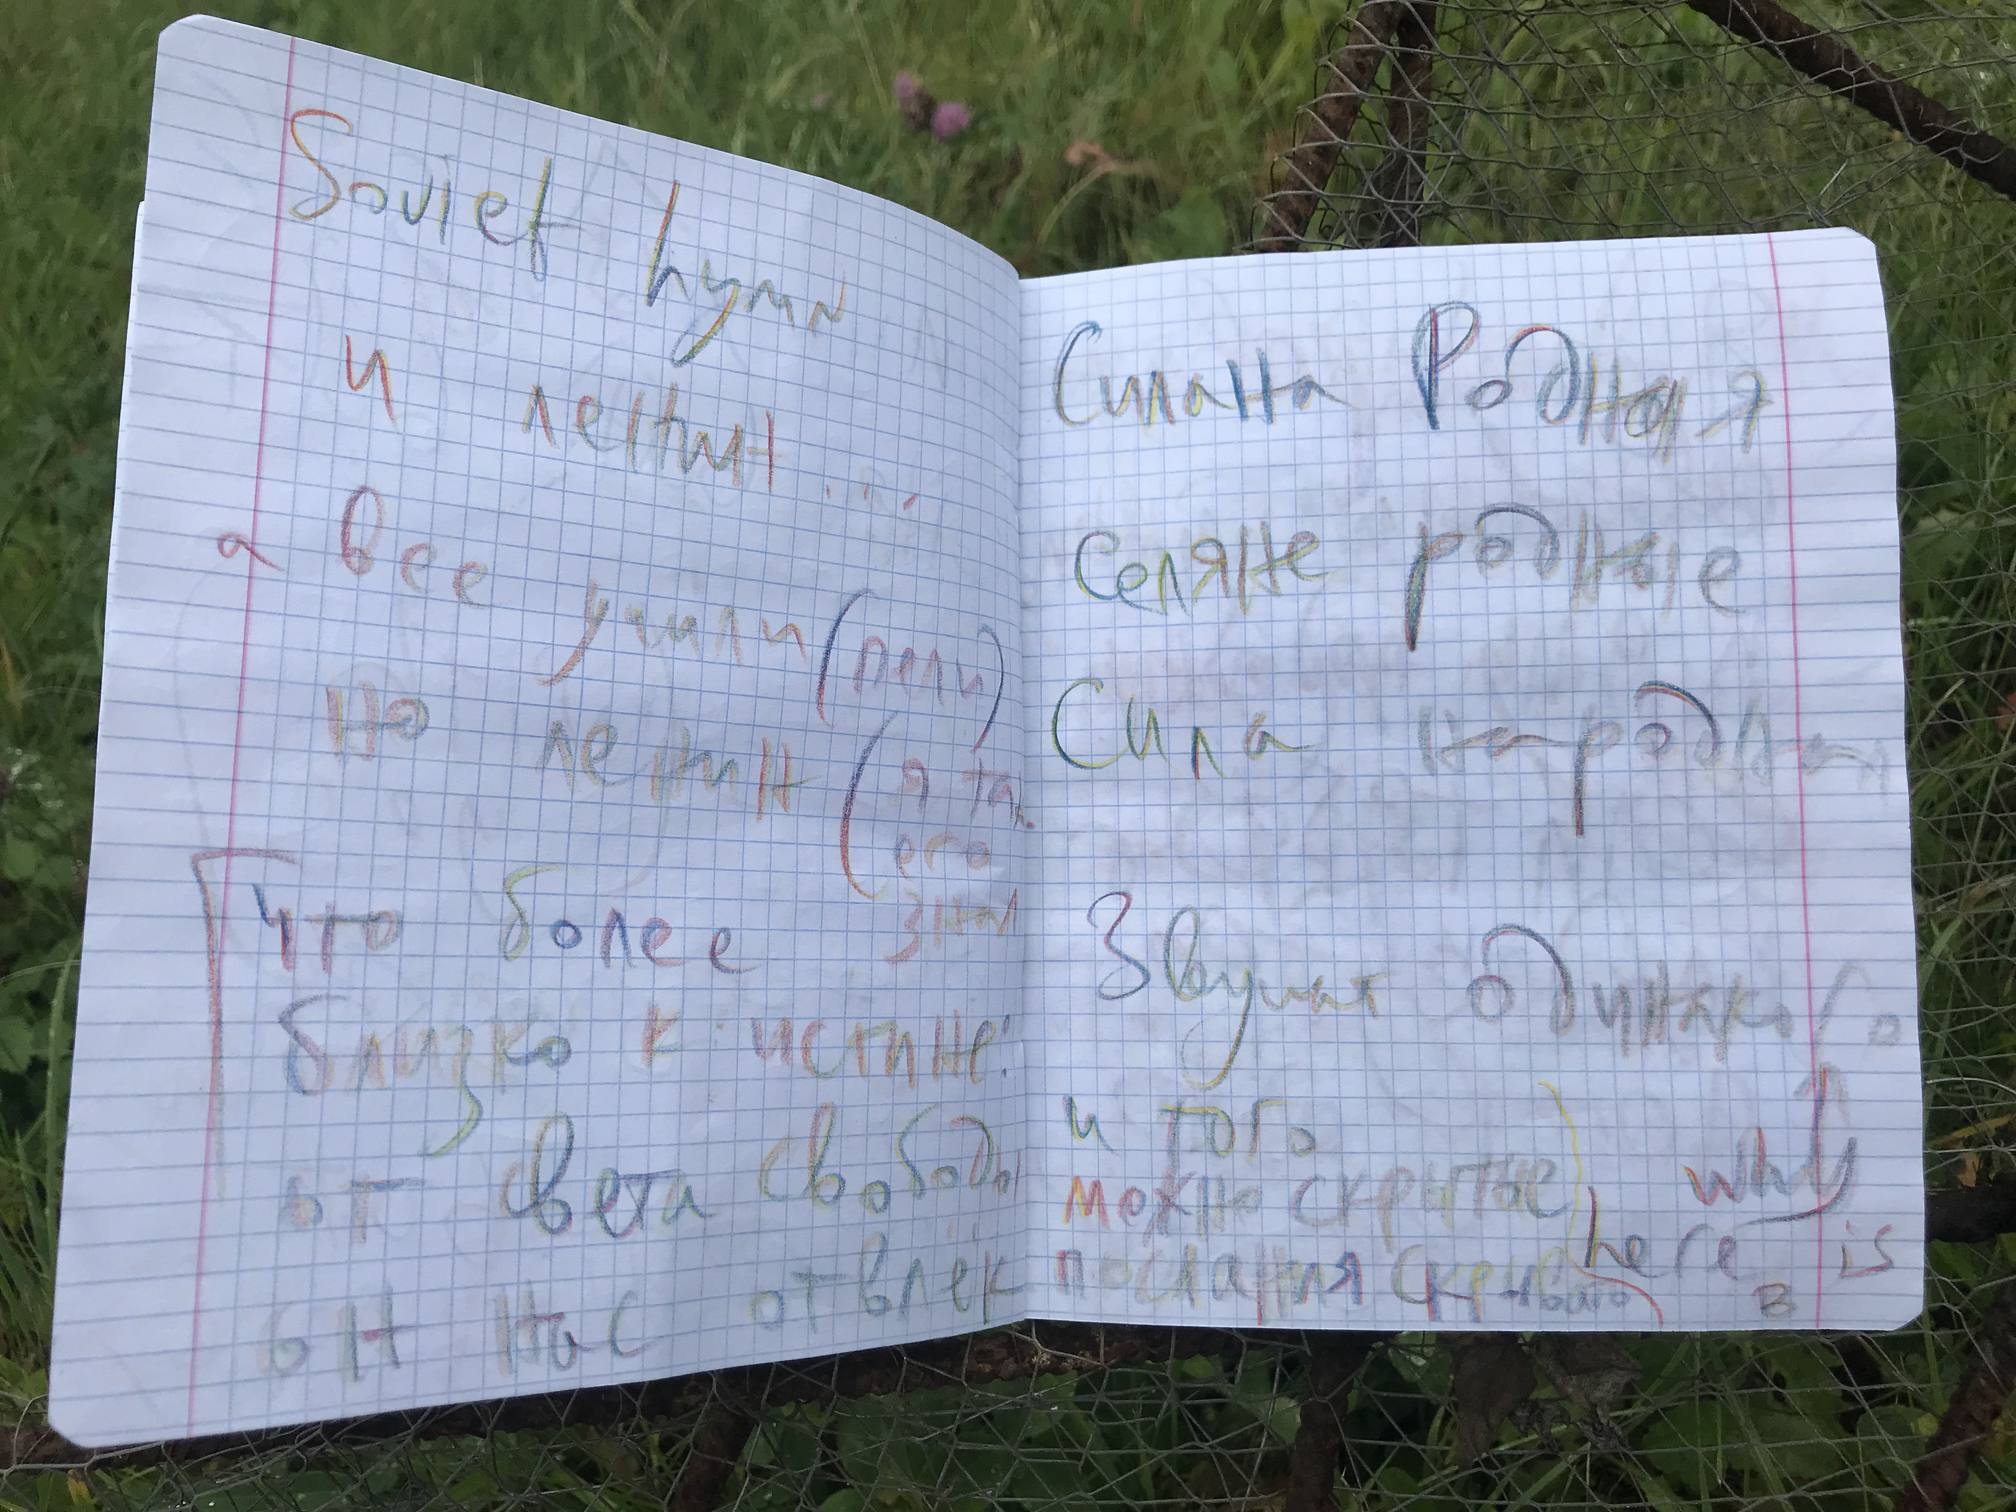 Soviet hymn
и ленин...
а все учили (пели)
но ленин (я так
его
знал
что более
близко к истине:
от света свободы
он нас отвлёк
Силана Родная
Селяне родные
Сила народная
Звучат одинаково
и того
можно скрытые
послания
why
here is